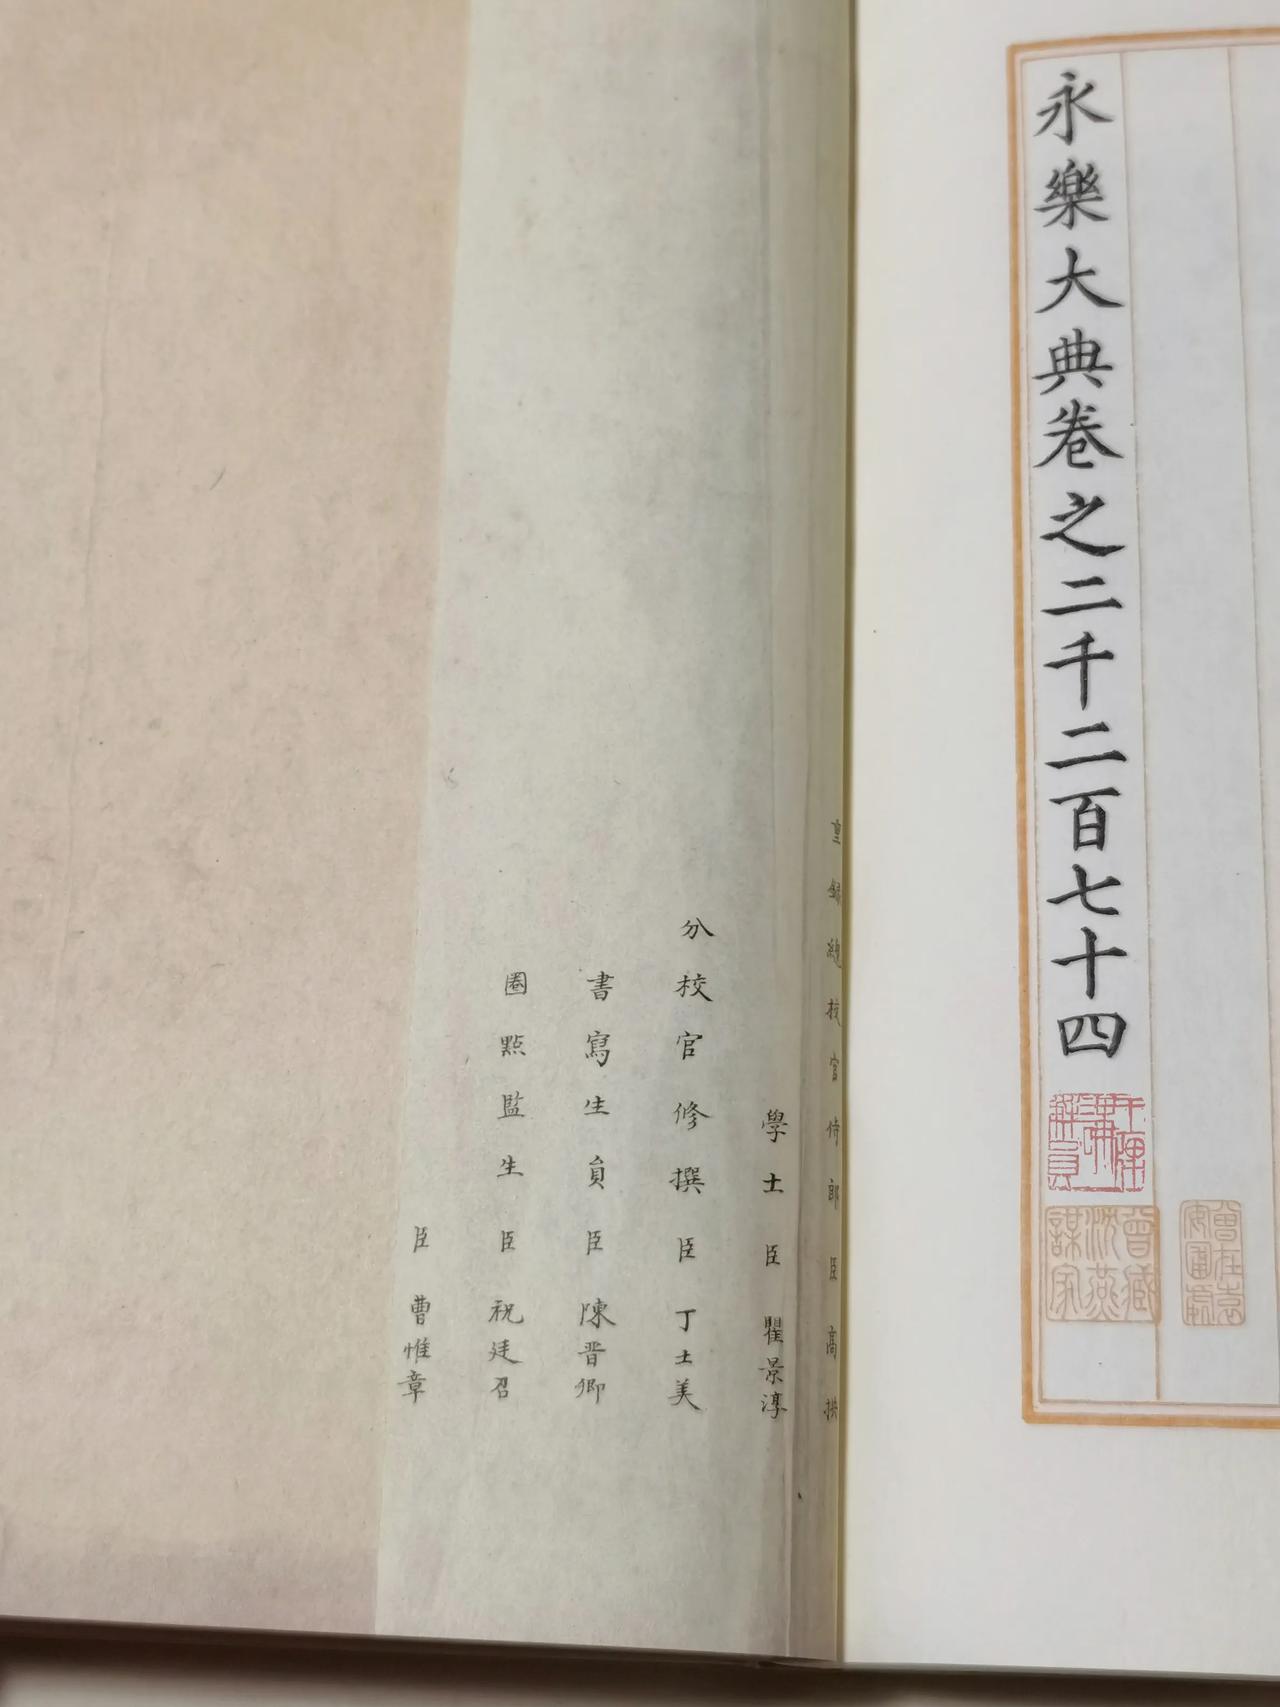 曾在袁
安圃處
永樂大典卷之二千二百七十四
曾藏
沈燕
謀家
重録總校官侍郎臣高拱
學士臣瞿景淳
分校官修撰臣丁士美
書寫生員臣陳晋卿
圈點監生臣祝廷召
臣曹惟章